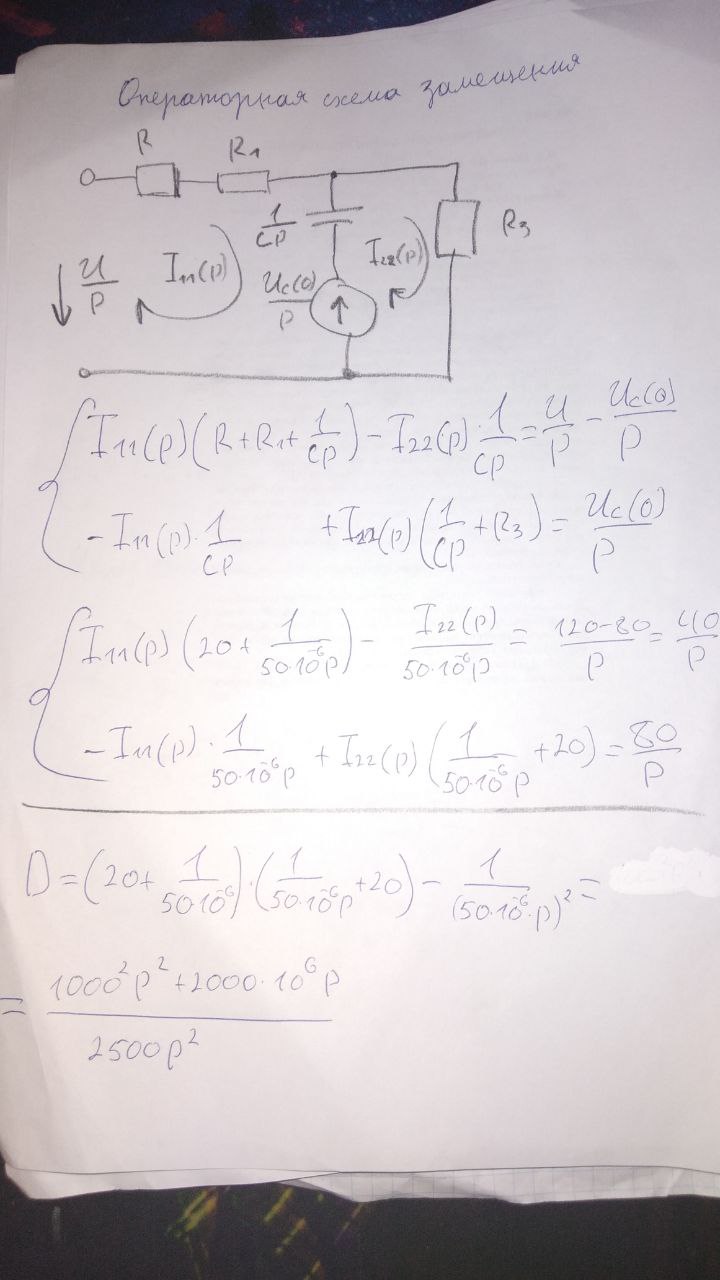 Операторная схема замещения
R R₁
1/Cp
R₃
U/p I₁₁(p) Uc(0)/p I₂₂(p)
I₁₁(p)(R+R₁+1/Cp)-I₂₂(p)·1/Cp=U/p-Uc(0)/p
-I₁₁(p)·1/Cp +I₂₂(p)(1/Cp+R₃)=Uc(0)/p
I₁₁(p)(20+1/50·10⁻⁶p)-I₂₂(p)/50·10⁻⁶p=120-80/p=40/p
-I₁₁(p)·1/50·10⁻⁶p+I₂₂(p)(1/50·10⁻⁶p+20)=80/p
D=(20+1/50·10⁻⁶)·(1/50·10⁻⁶p+20)-1/(50·10⁻⁶·p)²=
=1000²p²+2000·10⁶p/2500p²